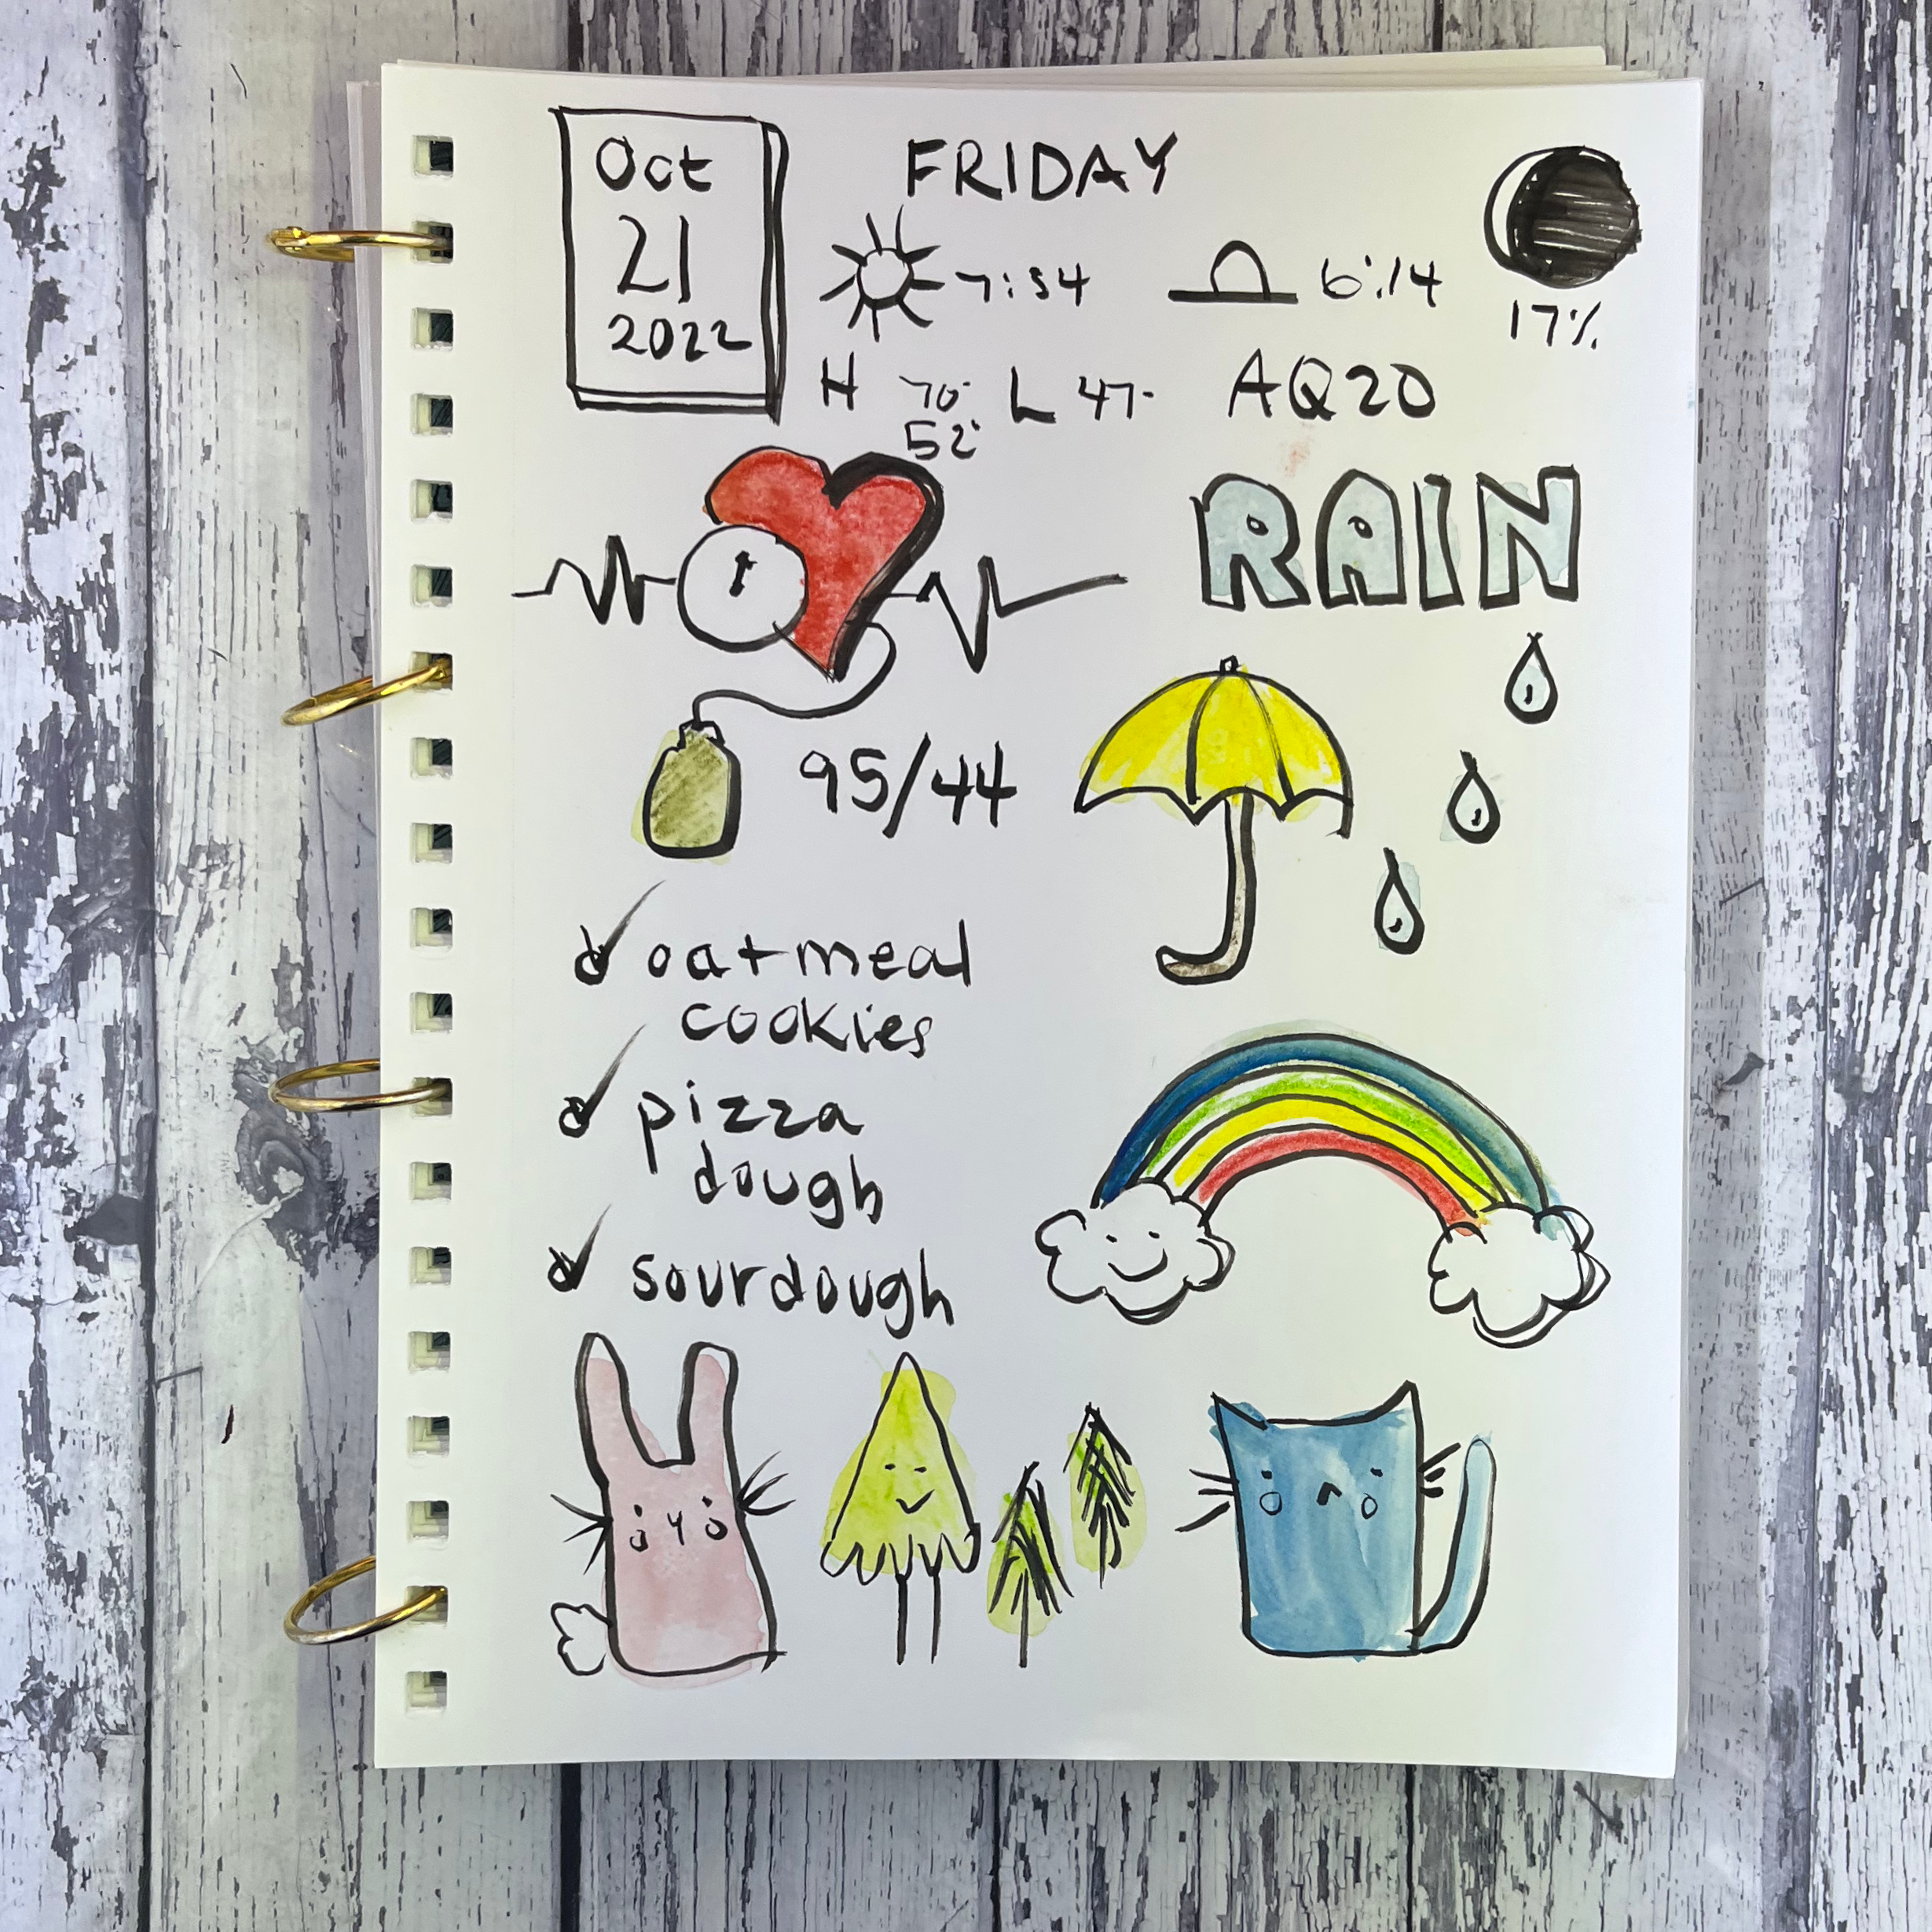 Oct
21
2022
FRIDAY
7:34
6:14
17%
H 70° L 47° AQ20
52°
RAIN
95/44
oatmeal
cookies
pizza
dough
sourdough